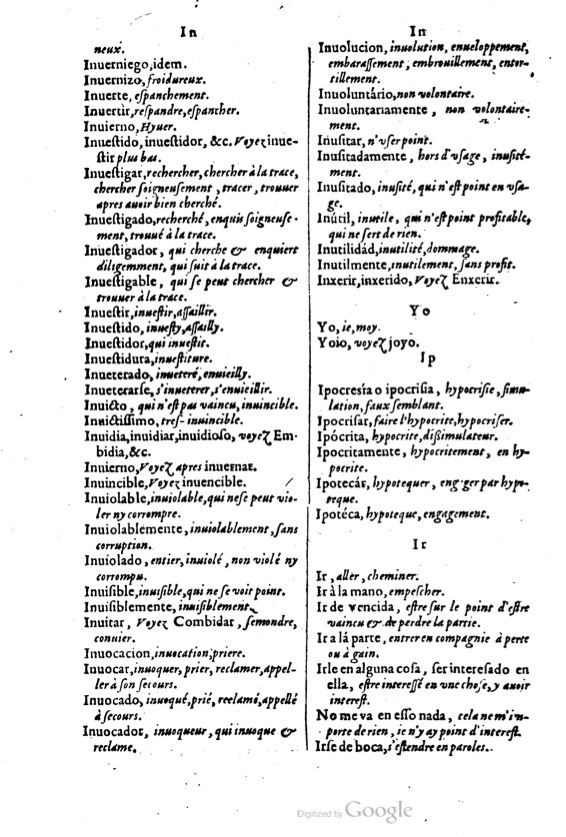 In
neux.
Inuerniego, idem.
Inuernizo, froidureux.
Inuerte, espanchement.
Inuertir, respandre, espancher.
Inuierno, Hyuer.
Inuestido, inuestidor, &c. Voyez inue-
stir plus bas.
Inuestigar, rechercher, chercher à la trace,
chercher soigneusement, tracer, trouuer
apres auoir bien cherché.
Inuestigado, recherché, enquis soigneuse-
ment, trouué à la trace.
Inuestigador, qui cherche & enquiert
diligemment, qui suit à la trace.
Inuestigable, qui se peut chercher &
trouuer à la trace.
Inuestir, inuestir, assaillir.
Inuestido, inuesty, assailly.
Inuestidor, qui inuestit.
Inuestidura, inuestiture.
Inueterado, inueteré, enuieilly.
Inueterarse, s'inueterer, s'enuieillir.
Inuicto, qui n'est pas vaincu, inuincible.
Inuictissimo, tres-inuincible.
Inuidia, inuidiar, inuidioso, voyez Em-
bidia, &c.
Inuierno, Voyez apres inuernar.
Inuincible, Voyez inuencible.
Inuiolable, inuiolable, qui ne se peut vio-
ler ny corrompre.
Inuiolablemente, inuiolablement, sans
corruption.
Inuiolado, entier, inuiolé, non violé ny
corrompu.
Inuisible, inuisible, qui ne se voit point.
Inuisiblemente, inuisiblement.
Inuitar, Voyez Combidar, semondre,
conuier.
Inuocacion, inuocation, priere.
Inuocar, inuoquer, prier, reclamer, appel-
ler à son secours.
Inuocado, inuoqué, prié, reclamé, appellé
à secours.
Inuocador, inuoqueur, qui inuoque &
reclame.
In
Inuolucion, inuolution, enueloppement,
embarassement, embrouillement, entor-
tillement.
Inuoluntário, non volontaire.
Inuoluntariamente, non volontaire-
ment.
Inusitar, n'vser point.
Inusitadamente, hors d'vsage, inusité-
ment.
Inusitado, inusité, qui n'est point en vsa-
ge.
Inútil, inutile, qui n'est point profitable,
qui ne sert de rien.
Inutilidád, inutilité, dommage.
Inutilmente, inutilement, sans profit.
Inxerir, inxerido, Voyez Enxerir.
Yo
Yo, ie, moy.
Yoio, voyez joyo.
Ip
Ipocresia o ipocrisia, hypocrisie, simu-
lation, faux semblant.
Ipocrisar, faire l'hypocrite, hypocriser.
Ipócrita, hypocrite, dissimulateur.
Ipocritamente, hypocritement, en hy-
pocrite.
Ipotecár, hypotequer, engager par hypo-
teque.
Ipotéca, hypoteque, engagement.
Ir
Ir, aller, cheminer.
Ir à la mano, empescher.
Ir de vencida, estre sur le point d'estre
vaincu & de perdre la partie.
Ir a lá parte, entrer en compagnie à perte
ou à gain.
Irle en alguna cosa, ser interesado en
ella, estre interessé en vne chose, y auoir
interest.
No me va en esso nada, cela ne m'in-
porte de rien, ie n'y ay point d'interest.
Irse de boca, s'estendre en paroles.
Digitized by Google